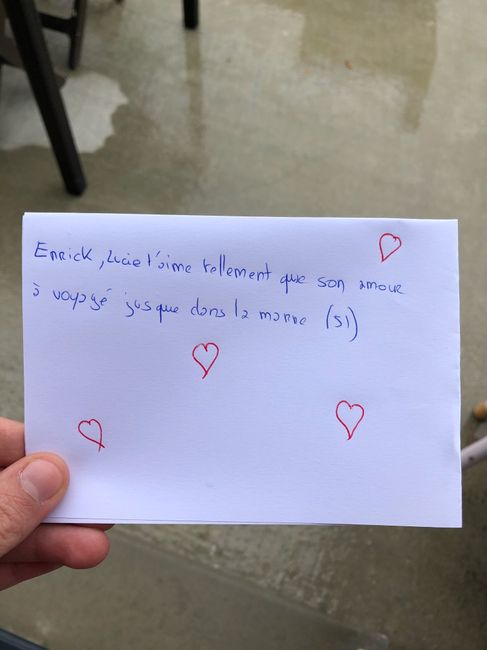 Enrick, Lucie t'aime tellement que son amour
à voyagé jusque dans la marne (51)